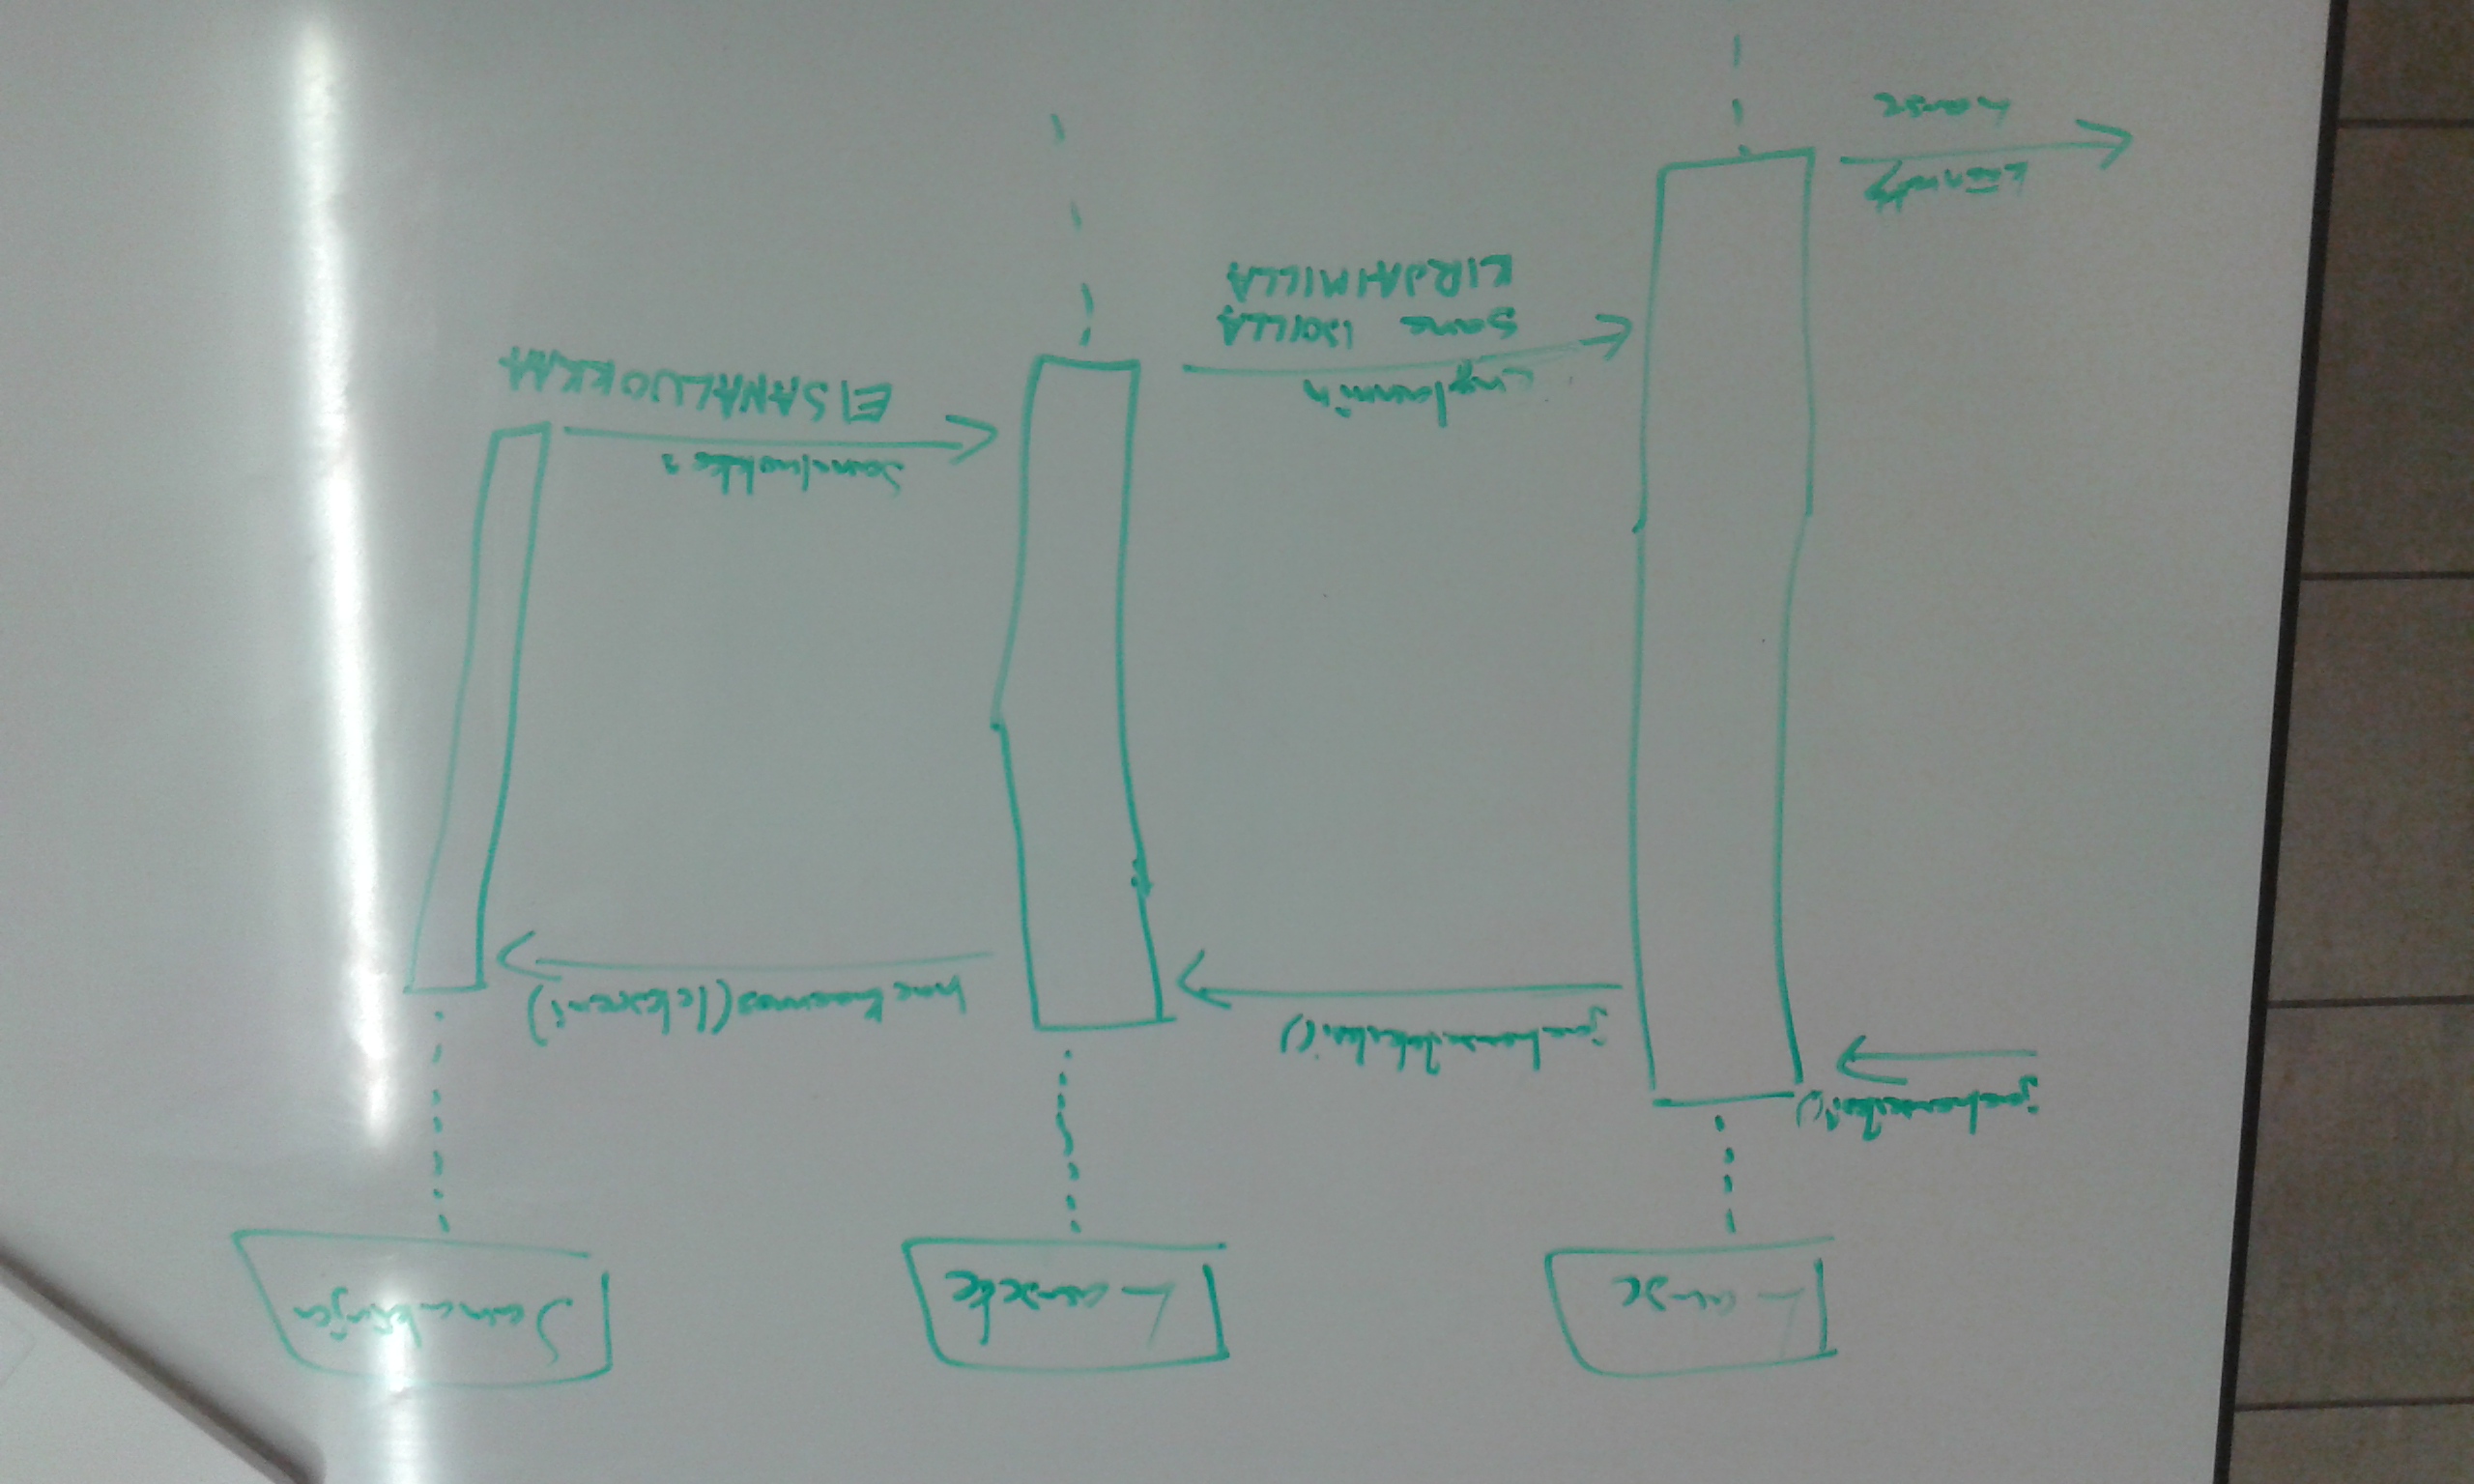 Lause
Lauseke
Sanakirja
jaaLauseiksi()
jaaLausekkeiksi()
haeKaannos(lekseemi)
Sanaluokka:
EISANALUOKKAA
englannin
sana ISOILLA
KIRJAIMILLA
käännetty
Lause